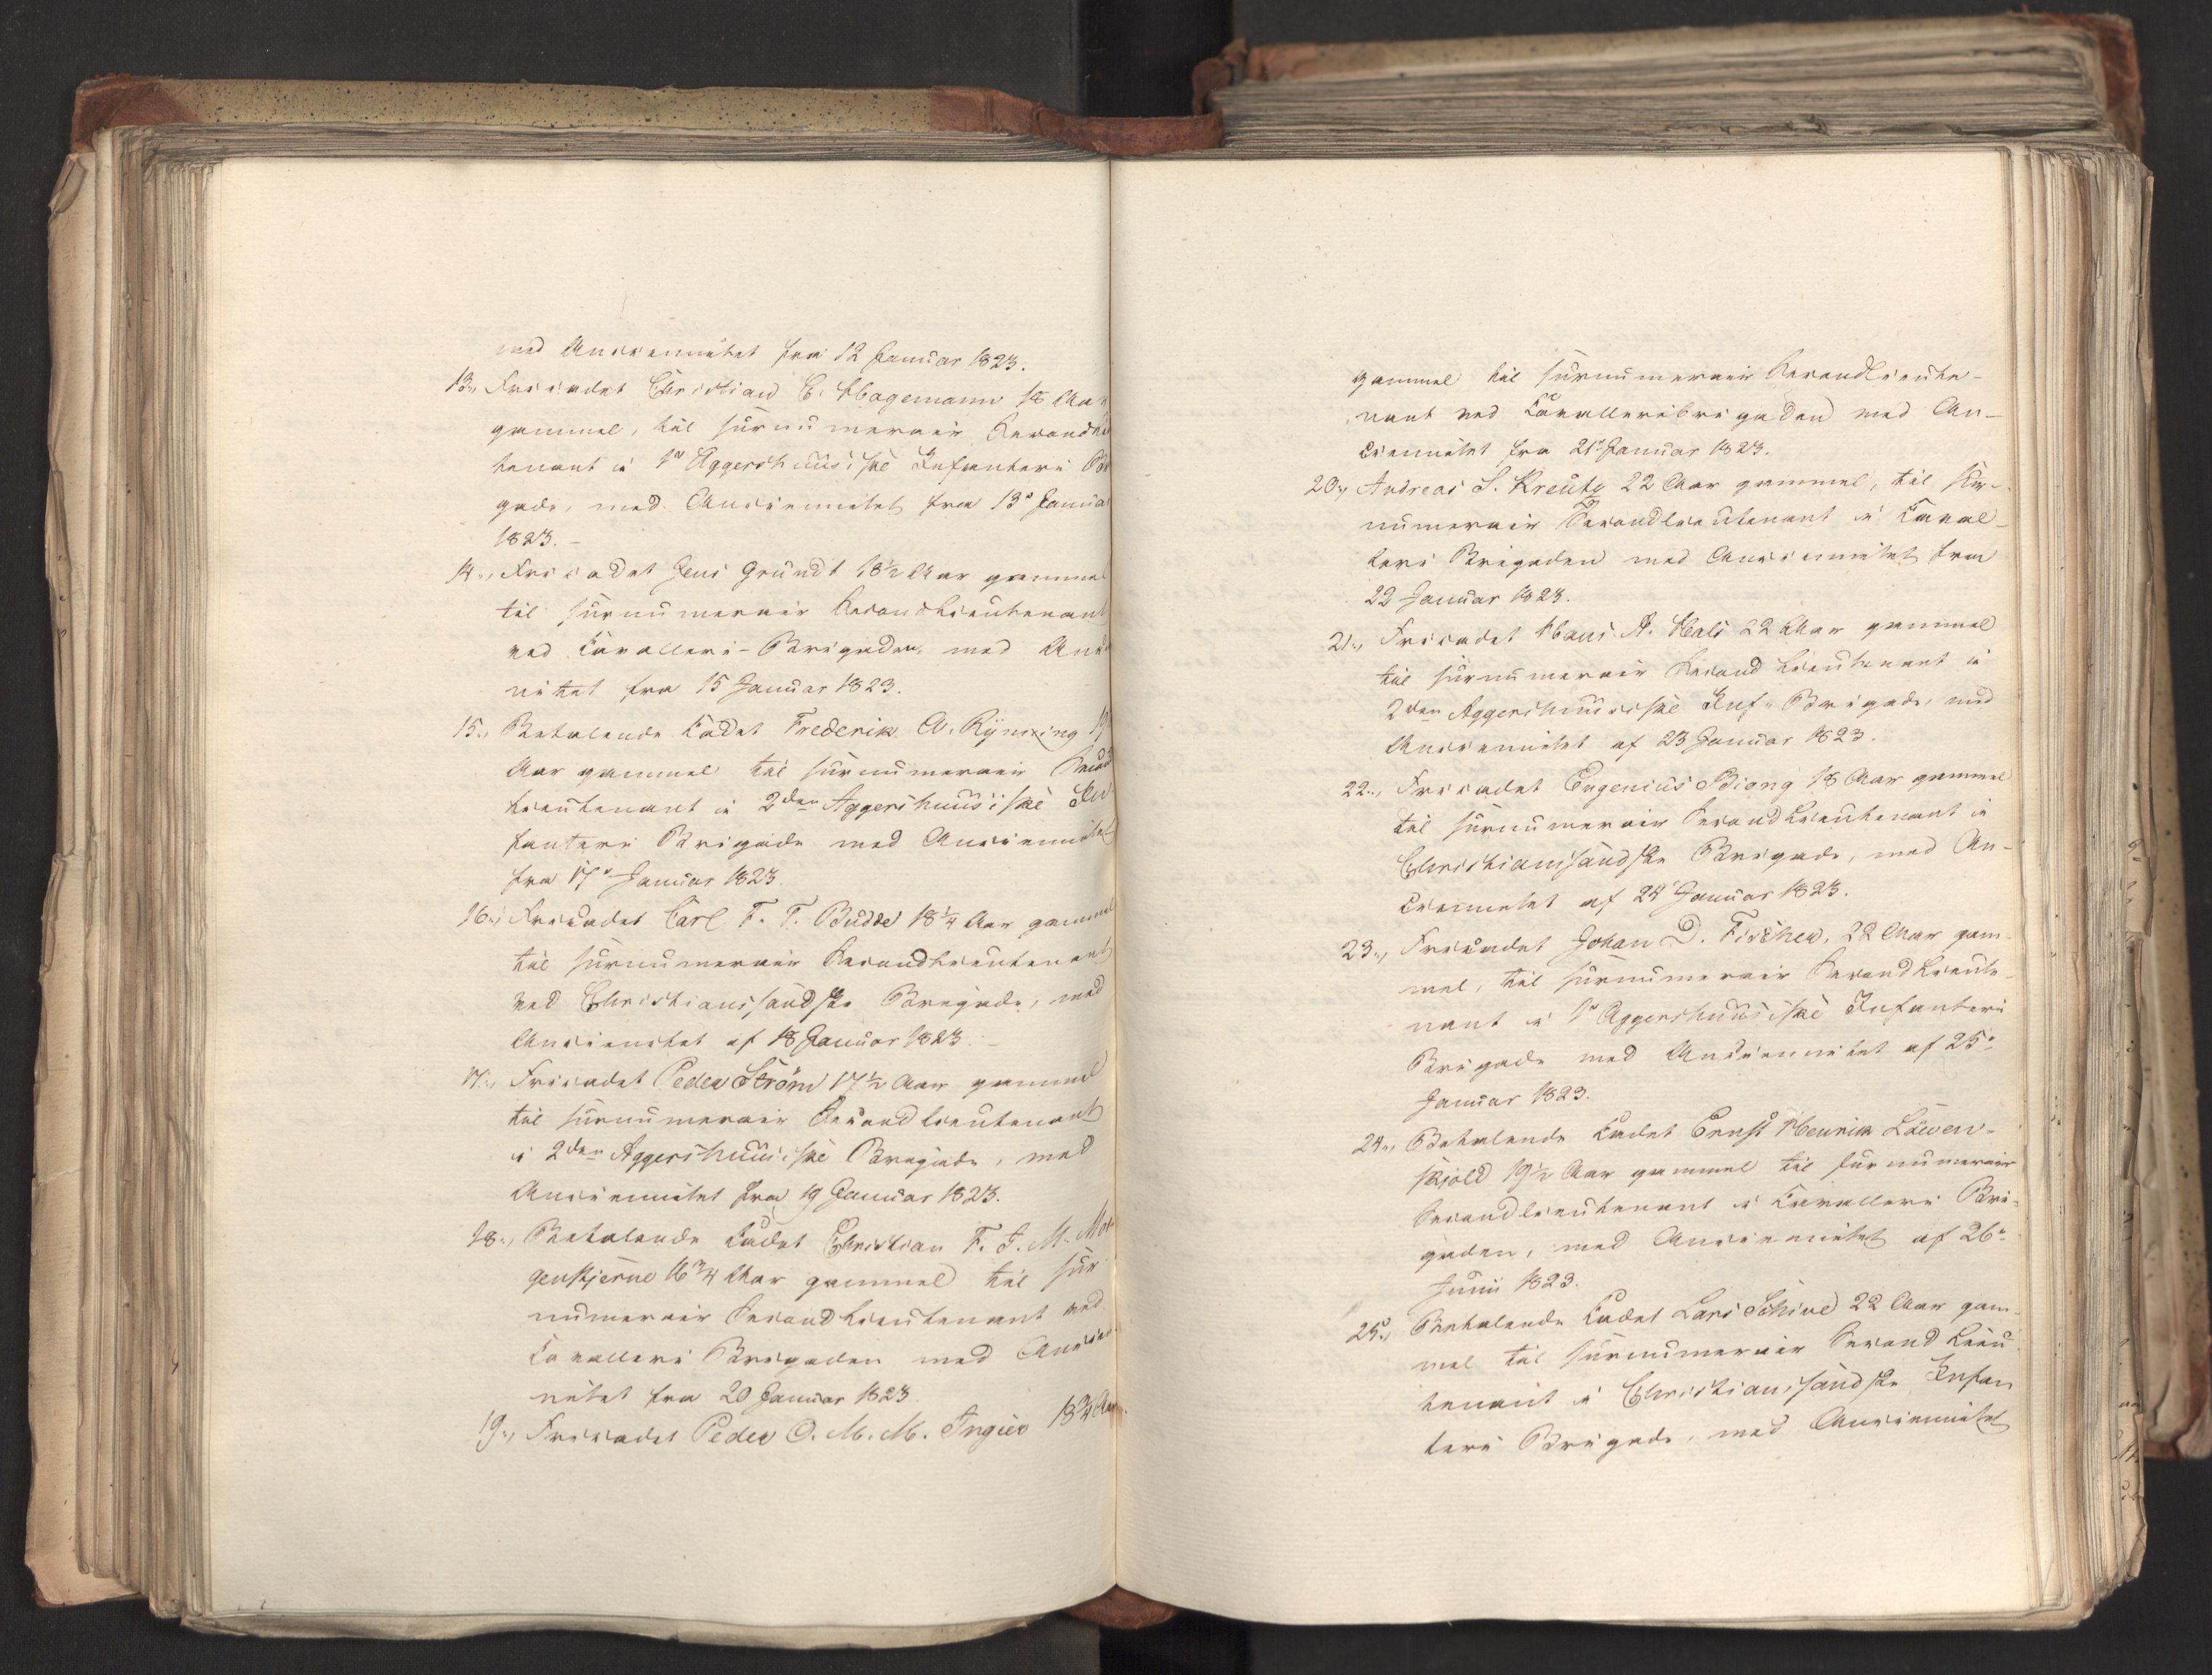 med Anciennitet fra 12 Januar 1823.
13., Fricadet Christian C. Hagemann 18 Aar
gammel, til surnumerair Secondlieu
tenant i 1ste Aggershuusiske Infanteri Bri
gade, med Anciennitet fra 13de Januar
1823. –
14., Fricadet Jens Grundt 18½ Aar gammel
til surnumerair Secondlieutenant
ved Cavalleri-Brigaden, med Ancien
nitet fra 15 Januar 1823.
15., Betalende Cadet Frederik A. Ryming 19
Aar gammel til surnumerair Second
lieutenant i 2den Aggershuusiske In
fanteri Brigade med Anciennitet
fra 17de Januar 1823
16., Fricadet Carl F. T. Budde 18¼ Aar gammel
til surnumerair Secondlieutenant
ved Christianssandske Brigade, med
Anciennitet af 18 Januar 1823. –
17., Fricadet Peder Strøm 17½ Aar gammel
til surnumerair Secondlieutenant
i 2den Aggershuusiske Brigade, med
Anciennitet fra 19 Januar 1823.
18., Betalende Cadet Christian F. J. M. Mor
genstjerne 16¾ Aar gammel til sur
numerair Secondlieutenant ved
Cavalleri Brigaden med Ancien
nitet fra 20 Januar 1823.
19., Fricadet Peder O. M. M. Ingier 18¾ Aar
gammel til surnumerair Secondlieute-
nant ved Cavalleribrigaden med An-
ciennitet fra 21de Januar 1823.
20., Andreas S. Kreutz 22 Aar gammel, til sur-
numerair Secondlieutenant i Caval-
leri Brigaden med Anciennitet fra
22 Januar 1823.
21., Fricadet Hans A. Hals 22 Aar gammel
til surnumerair Second Lieutenant i
2den Aggershuusiske Inf. Brigade, med
Anciennitet af 23 Januar 1823.
22., Fricadet Eugenius Biong 18 Aar gammel
til surnumerair Secondlieutenant i
Christianssandske Brigade, med An-
ciennitet af 24 Januar 1823.
23., Fricadet Johan D. Fischer, 22 Aar gam-
mel, til surnumerair Secondlieute-
nant i 1ste Aggershuusiske Infanteri
Brigade med Anciennitet af 25de
Januar 1823.
24., Betalende Cadet Ernst Henrik Löwen-
skjold 19½ Aar gammel til surnumerair
Secondlieutenant i Cavalleri Bri-
gaden, med Anciennitet af 26de
Junii 1823.
25., Betalende Cadet Lars Schive 22 Aar gam-
mel til surnumerair Second Lieu
tenant i Christianssandske Infan
teri Brigade, med Anciennitet